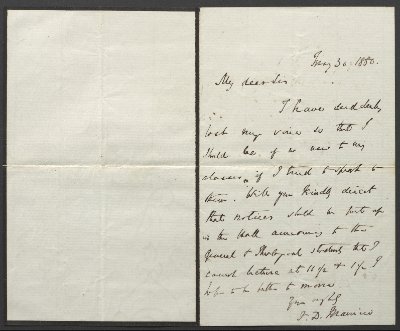 Jany 30. 1880.
My dear Sir
I have suddenly
lost my voice so that I
should be of no use to my
classes, if I tried to speak to
them. Will you kindly direct
that notices shall be put up
in the Hall announcing to the
general & Theological students that I
cannot lecture at 11½ & 1½. I
hope to be better to morrow